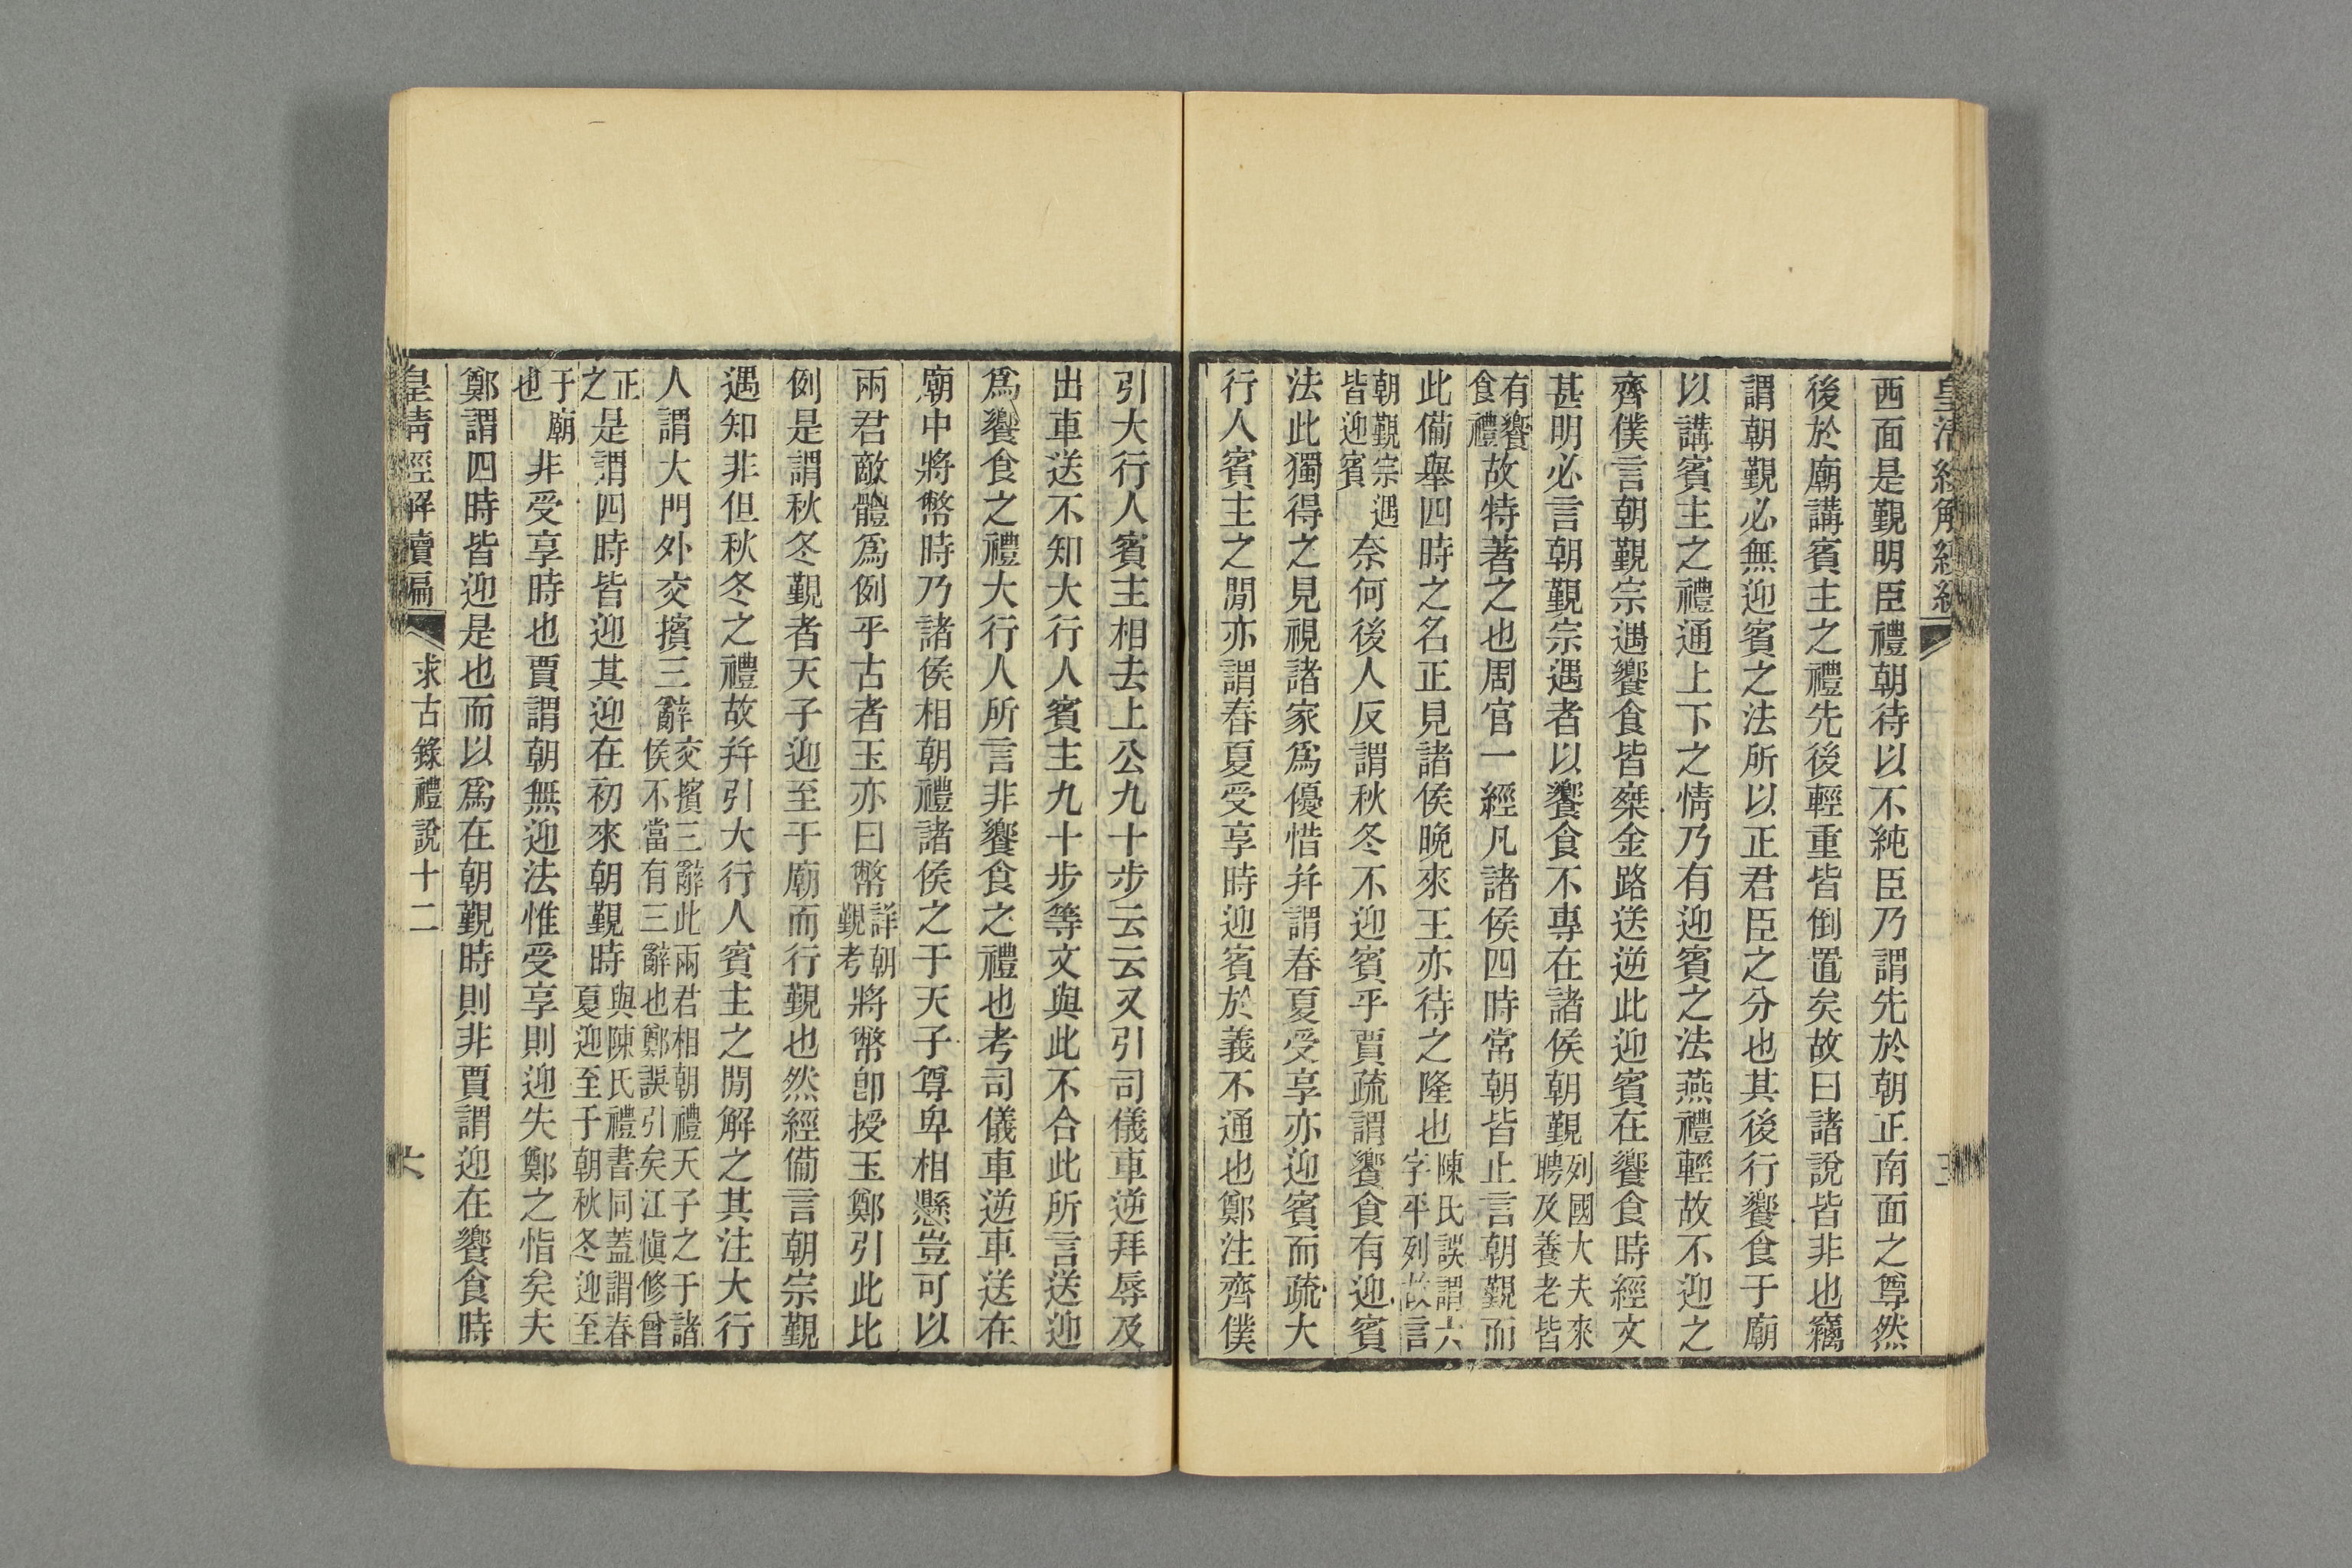 西面是覲明臣禮朝待以不純臣乃謂先於朝正南面之尊然
後於廟講賓主之禮先後輕重皆倒置矣故曰諸說皆非也竊
謂朝覲必無迎賓之法所以正君臣之分也其後行饗食于廟
以講賓主之禮通上下之情乃有迎賓之法燕禮輕故不迎之
齊僕言朝覲宗遇饗食皆椉金路送逆此迎賓在饗食時經文
甚明必言朝覲宗遇者以饗食不專在諸侯朝覲列國大夫來聘及養老皆
有饗食禮故特著之也周官一經凡諸侯四時常朝皆止言朝覲而
此備舉四時之名正見諸侯晚來王亦待之隆也陳氏誤謂六字平列故言
朝覲宗遇皆迎賓奈何後人反謂秋冬不迎賓乎賈疏謂饗食有迎賓
法此獨得之見視諸家為優惜并謂春夏受享亦迎賓而疏大
行人賓主之閒亦謂春夏受享時迎賓於義不通也鄭注齊僕
引大行人賓主相去上公九十步云云又引司儀車逆拜辱及
出車送不知大行人賓主九十步等文與此不合此所言送迎
爲饗食之禮大行人所言非饗食之禮也考司儀車逆車送在
廟中將幣時乃諸侯相朝禮諸侯之于天子尊卑相懸豈可以
兩君敵體爲例乎古者玉亦曰幣詳朝覲考將幣卽授玉鄭引此比
例是謂秋冬覲者天子迎至于廟而行覲也然經備言朝宗覲
遇知非但秋冬之禮故并引大行人賓主之閒解之其注大行
人謂大門外交擯三辭交擯三辭此兩君相朝禮天子之于諸侯不當有三辭也鄭誤引矣江愼修曾
正之是謂四時皆迎其迎在初來朝覲時與陳氏禮書同蓋謂春夏迎至于朝秋冬迎至
于廟也非受享時也賈謂朝無迎法惟受享則迎失鄭之恉矣夫
鄭謂四時皆迎是也而以爲在朝覲時則非賈謂迎在饗食時
皇清經解續編
求古錄禮說十二